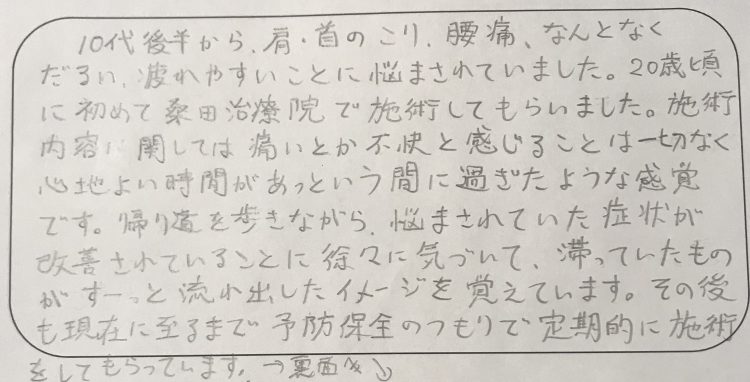 10代後半から、肩・首のこり、腰痛、なんとなく
だるい、疲れやすいことに悩まされていました。20歳頃
に初めて桑田治療院で施術してもらいました。施術
内容に関しては痛いとか不快と感じることは一切なく
心地よい時間があっという間に過ぎたような感覚
です。帰り道を歩きながら、悩まされていた症状が
改善されていることに徐々に気づいて、滞っていたもの
がすーっと流れ出したイメージを覚えています。その後
も現在に至るまで予防保全のつもりで定期的に施術
をしてもらっています。→裏面へ